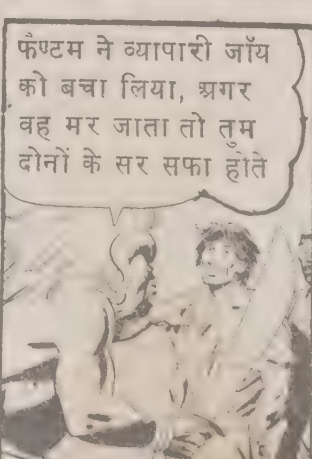 फैण्टम ने व्यापारी जॉय
को बचा लिया, अगर
वह मर जाता तो तुम
दोनों के सर सफा होते